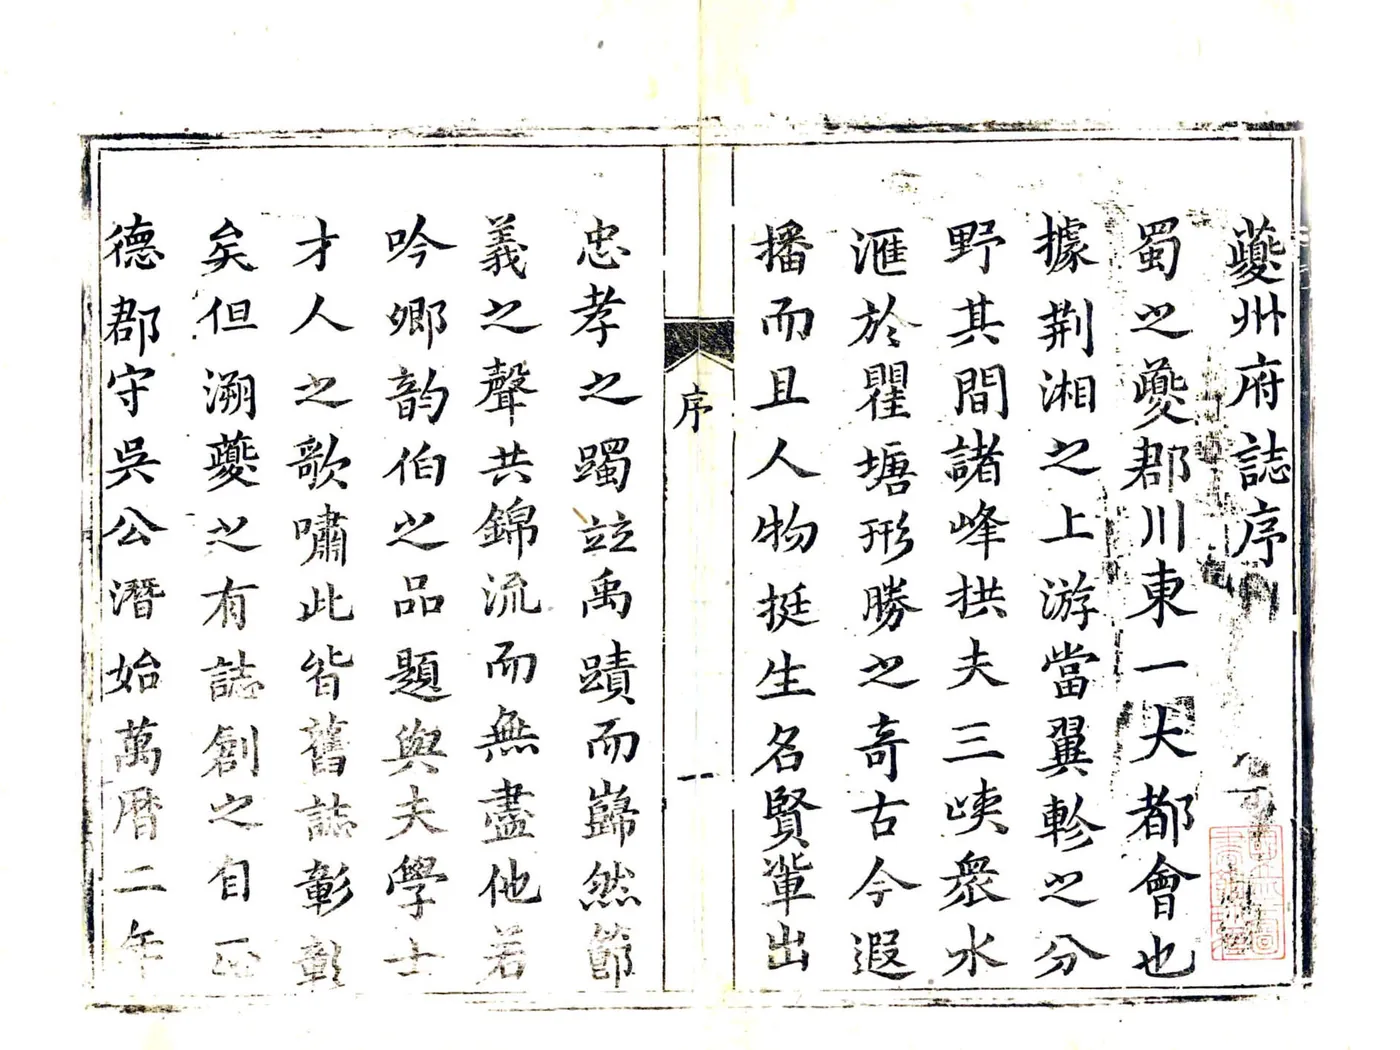 夔州府誌序
蜀之夔郡川東一大都會也
據荆湘之上游當翼軫之分
野其間諸峰拱夫三峡衆水
滙於瞿塘形勝之竒古今遐
播而且人物挺生名賢軰出
序
一
忠孝之躅竝禹蹟而巋然節
義之聲共錦流而無盡他若
吟鄉韵伯之品題與夫學士
才人之歌嘯此皆舊誌彰彰
矣但溯夔之有誌創之自正
德郡守吳公潛始萬曆二年